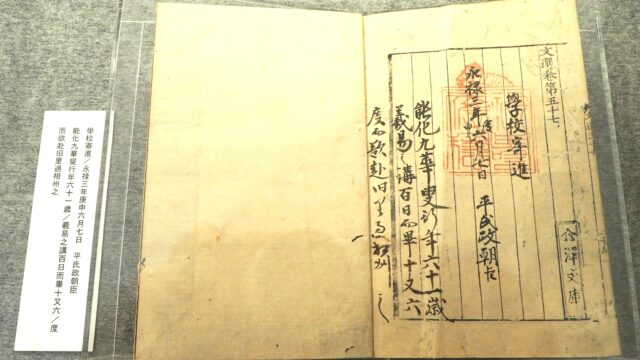 文選卷第五十七
金澤文庫
學校寄進
永禄三年庚申六月七日 平氏政朝臣
能化九華叟行年六十一歳
羲易之講百日而畢十又六
度而欲赴旧里過相州之
學校寄進／永禄三年庚申六月七日 平氏政朝臣
能化九華叟行年六十一歳／羲易之講百日而畢十又六／度
而欲赴旧里過相州之